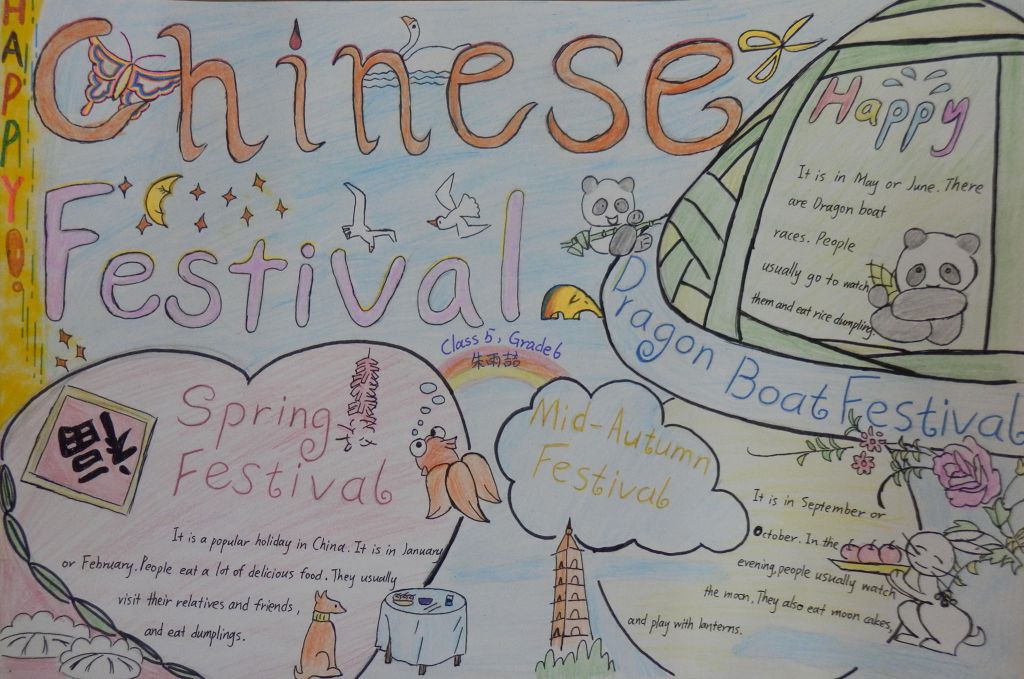 HAPPY!
Chinese
Festival
Class 5, Grade 6
朱雨喆
Happy
It is in May or June. There
are Dragon boat
races. People
usually go to watch
them and eat rice dumpling.
Dragon Boat Festival
Spring
Festival
福
It is a popular holiday in China. It is in January
or February. People eat a lot of delicious food. They usually
visit their relatives and friends,
and eat dumplings.
Mid-Autumn
Festival
It is in September or
October. In the
evening, people usually watch
the moon. They also eat moon cakes,
and play with lanterns.